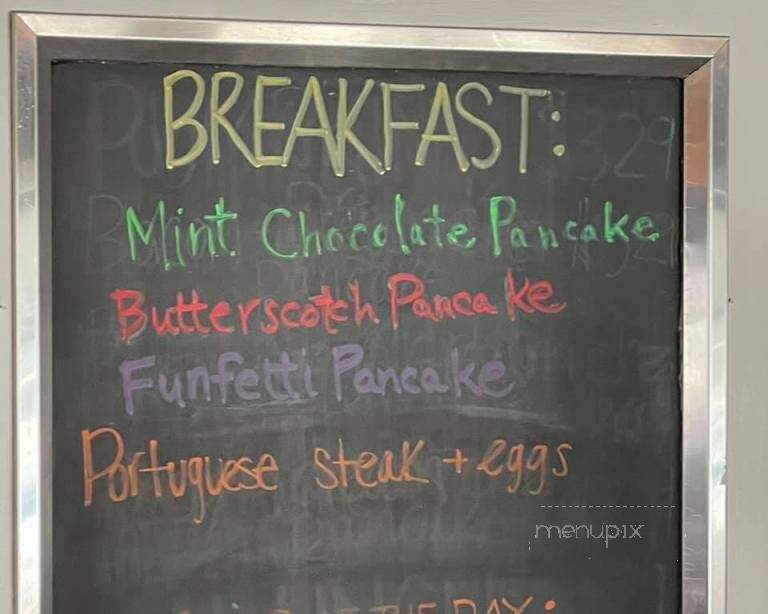 BREAKFAST:
Mint Chocolate Pancake
Butterscotch Pancake
Funfetti Pancake
Portuguese steak + eggs
menupix
THE DAY: